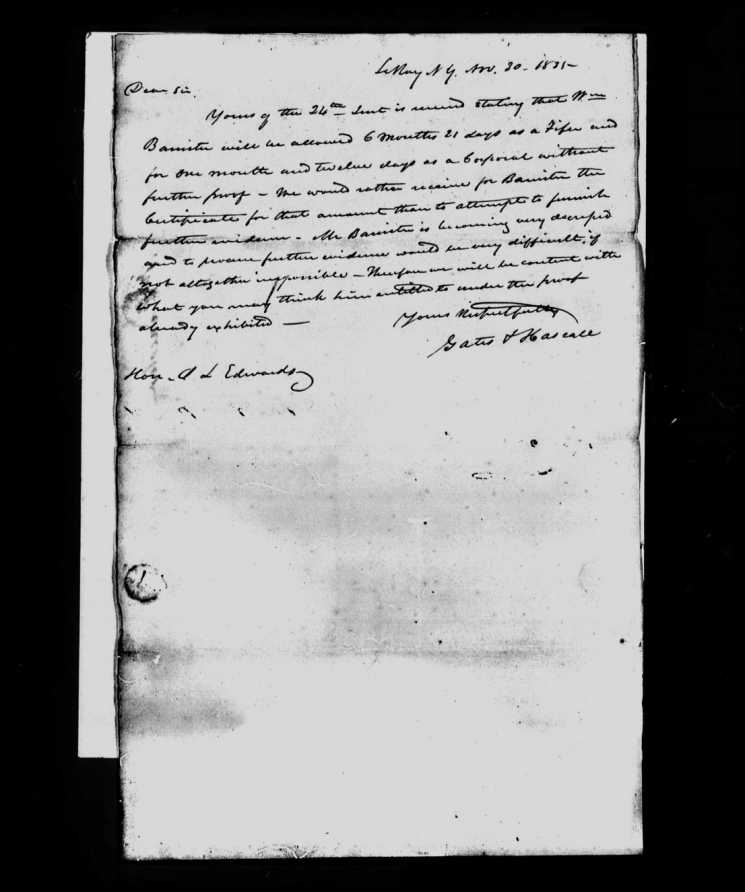 LeRoy N Y. Nov. 30. 1835-
Dear Sir.
Yours of the 24th Inst is recvd stating that Wm
Bannister will be allowed 6 months 21 days as a Fifer and
for one month and twelve days as a Corporal without
further proof - We would rather receive for Bannister the
Certificate for that amount than to attempt to furnish
further evidence - Mr Bannister is becoming very decreped
and to procure further evidence would be very difficult, if
not altogether impossible - Therefore we will be content with
what you may think him entitled to under the proof
already exhibited -
Yours Respectfully
Gates & Hascall
Hon. J L Edwards